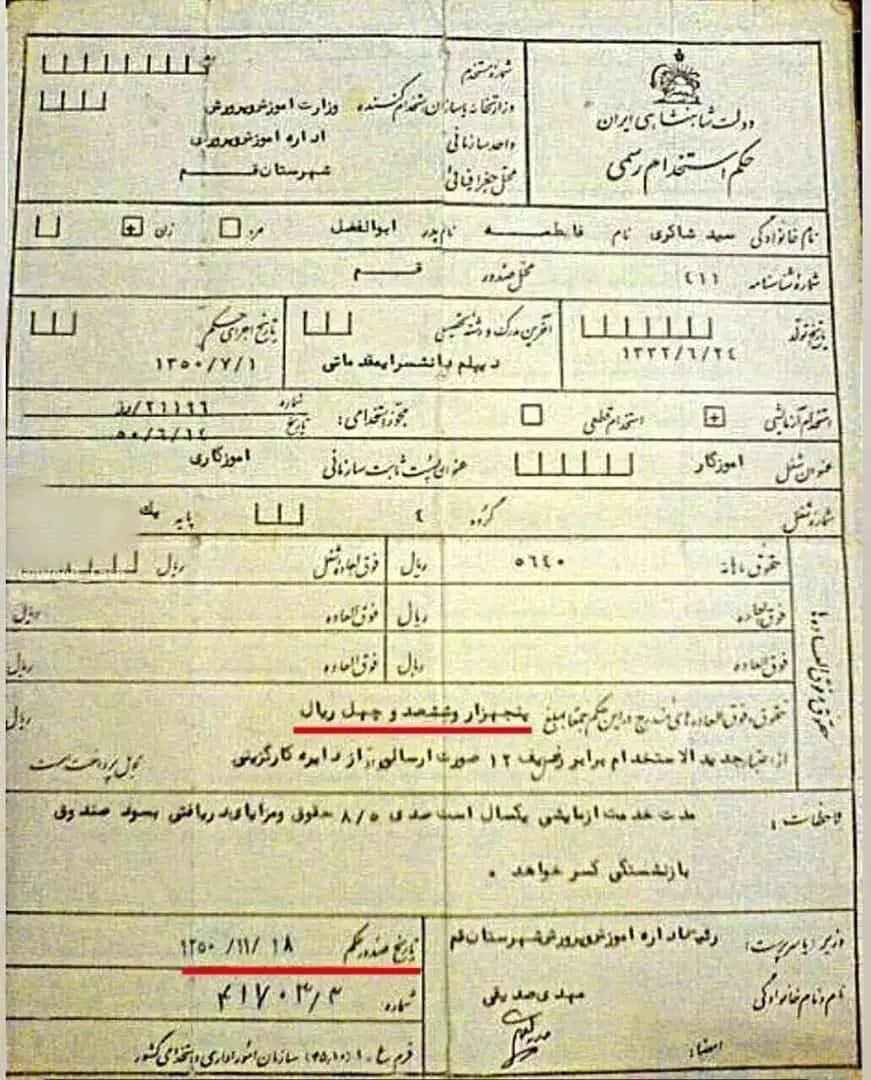 دولت شاهنشاهی ایران
حکم استخدام رسمی
شماره مستخدم
وزارتخانه یا سازمان استخدام کننده وزارت آموزش و پرورش
واحد سازمانی اداره آموزش و پرورش
محل جغرافیائی شهرستان قم
نام خانوادگی سید شاکری نام فاطمه نام پدر ابوالفضل مرد زن +
شماره شناسنامه ٤١١ محل صدور قم
تاریخ تولد ١٣٣٢/٦/٢٤
آخرین مدرک و رشته تحصیلی دیپلم دانشسرایمقدماتی
تاریخ اجرای حکم ١٣٥٠/٧/١
استخدام آزمایشی + استخدام قطعی مجوز استخدامی: شماره ٢١١٩٦/رز
تاریخ ٥٠/٦/١٤
عنوان شغل آموزگار عنوان پست ثابت سازمانی آموزگاری
شماره شغل گروه ٤ پایه یک
حقوق و فوق العاده ها
حقوق ماهانه ٥٦٤٠ ریال فوق العاده شغل ریال
فوق العاده ریال فوق العاده ریال
فوق العاده ریال فوق العاده ریال
حقوق و فوق العاده های مندرج در این حکم جمعا مبلغ پنجهزار و ششصد و چهل ریال ریال
از اعتبار جدید الاستخدام برابر ردیف ١٢ صورت ارسالی از دایره کارگزینی قابل پرداخت است
ملاحظات: مدت خدمت آزمایشی یکسال است صدی ٨/٥ حقوق ومزایای دریافتی بسود صندوق
بازنشستگی کسر خواهد .
وزیر (یا سرپرست): رئیس اداره آموزش و پرورش شهرستان قم
نام و نام خانوادگی مهدی صدیقی
امضاء:
تاریخ صدور حکم ١٣٥٠/١١/١٨
شماره ٤١٧٠٣/٣
فرم ع-١ (٤٥,١٠) سازمان امور اداری و استخدامی کشور